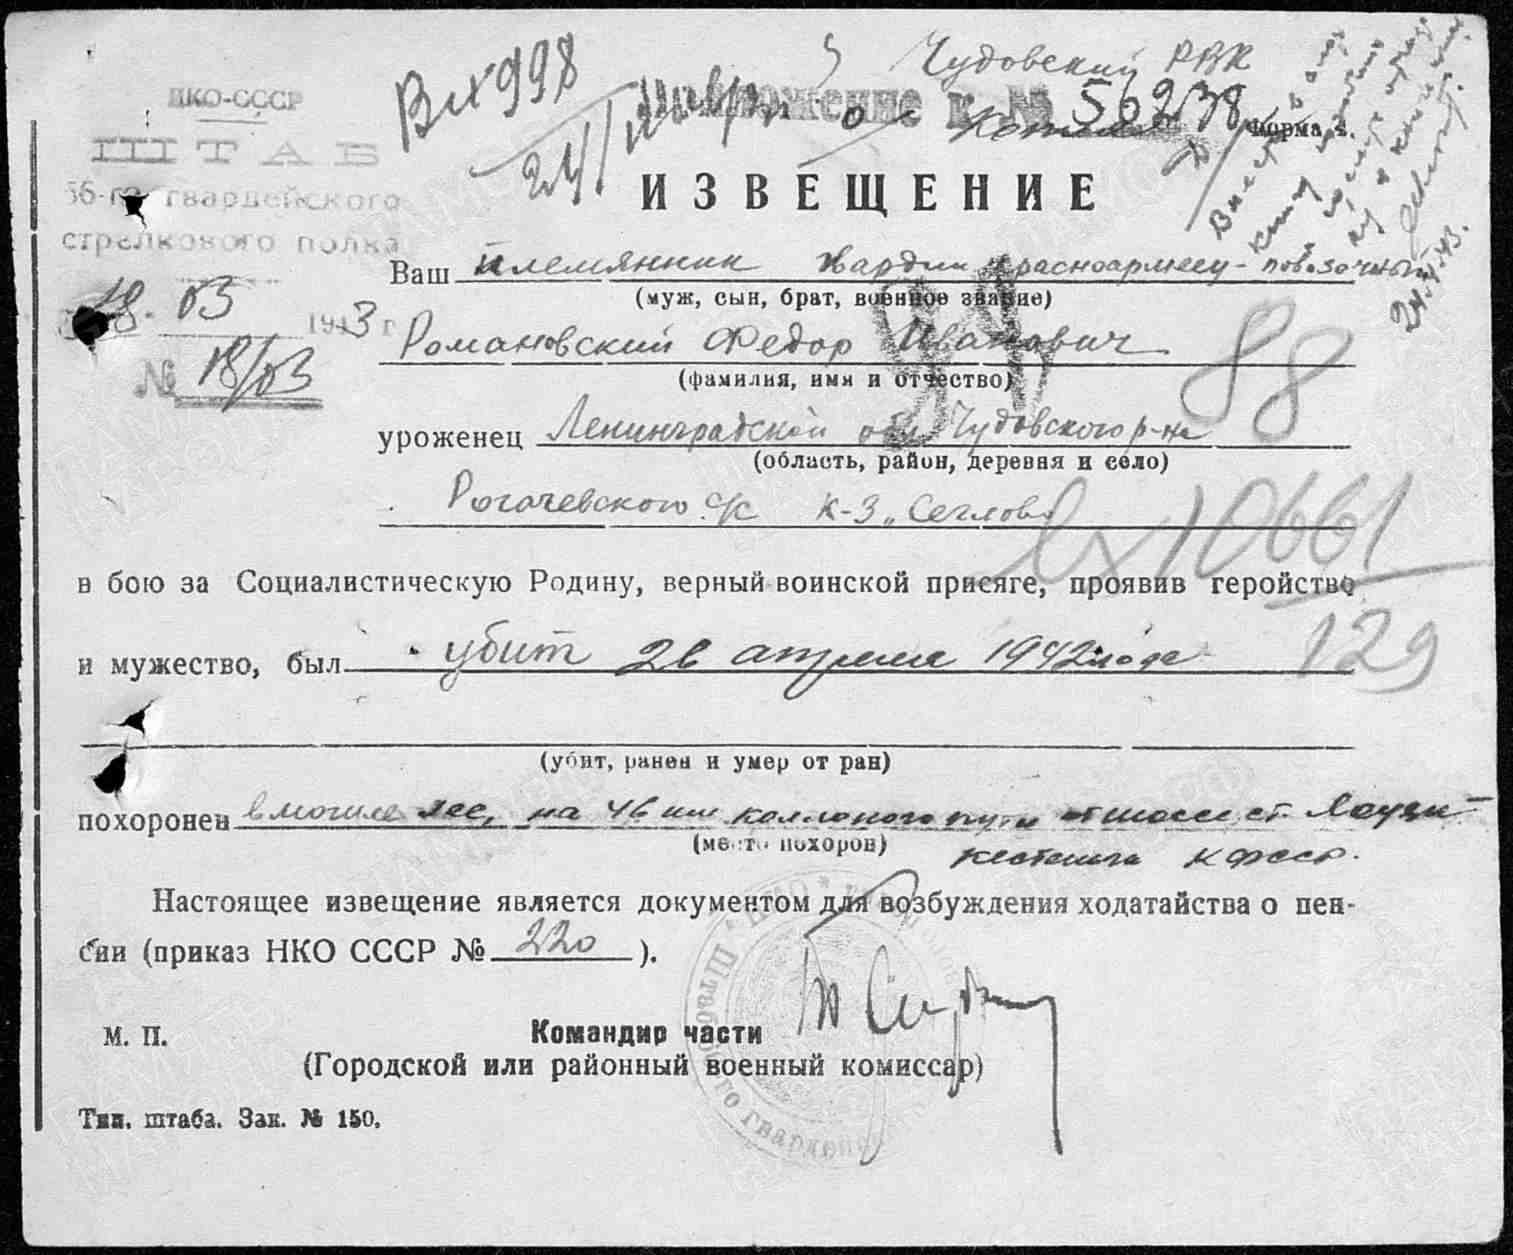 Чудовский РВК
Вх 998
НКО-СССР
ШТАБ
гвардейского
стрелкового полка
18. 03 1943 г
№ 18/03
к № 56238
Форма 4.
ИЗВЕЩЕНИЕ
Ваш племянник гвардии красноармеец-повозочный
(муж, сын, брат, военное звание)
Романовский Федор Иванович
(фамилия, имя и отчество)
88
уроженец Ленинградской обл Чудовского р-на
(область, район, деревня и село)
Рогачевского с/с К-З „
вх 10661
в бою за Социалистическую Родину, верный воинской присяге, проявив геройство
и мужество, был убит 26 апреля 1942 года
129
(убит, ранен и умер от ран)
похоронен в могиле лес, на 46 км от шоссе ст. Лоухи-
(место похорон)
Кестеньга КФССР.
Настоящее извещение является документом для возбуждения ходатайства о пен-
сии (приказ НКО СССР № 220 ).
М. П.
Командир части
(Городской или районный военный комиссар)
Тип. штаба. Зак. № 150.
24.4.43.